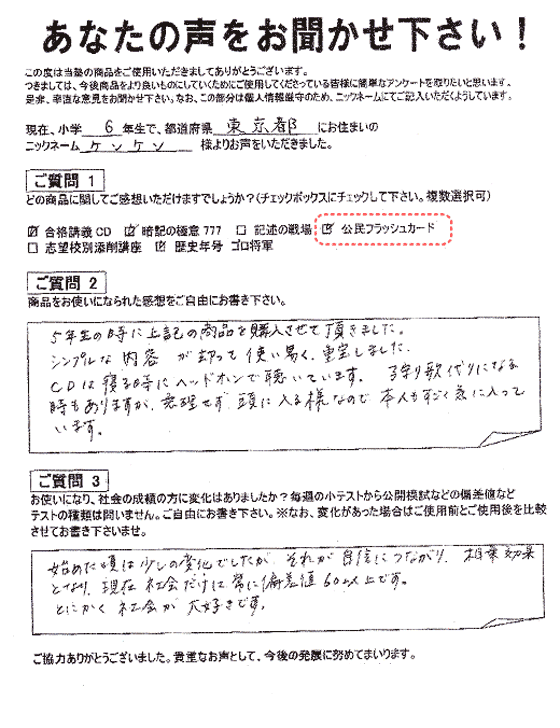 あなたの声をお聞かせ下さい！
この度は当塾の商品をご使用いただきましてありがとうございます。
つきましては、今後商品をより良いものにしていくためにご使用してくださっている皆様に簡単なアンケートを取りたいと思います。
是非、率直な意見をお聞かせ下さい。なお、この部分は個人情報厳守のため、ニックネームにてご記入いただくようしています。
現在、小学 6 年生で、都道府県 東京都 にお住まいの
ニックネーム ケンケン 様よりお声をいただきました。
ご質問 1
どの商品に関してご感想いただけますでしょうか？(チェックボックスにチェックして下さい。複数選択可)
☑ 合格講義CD ☑ 暗記の極意777 □ 記述の戦場 ☑ 公民フラッシュカード
□ 志望校別添削講座 ☑ 歴史年号 ゴロ将軍
ご質問 2
商品をお使いになられた感想をご自由にお書き下さい。
5年生の時に上記の商品を購入させて頂きました。
シンプルな内容が却って使い易く、重宝しました。
CDは寝る時にヘッドホンで聴いています。 子守り歌代りになる
時もありますが、無理せず頭に入る様なので本人もすごく気に入って
います。
ご質問 3
お使いになり、社会の成績の方に変化はありましたか？毎週の小テストから公開模試などの偏差値など
テストの種類は問いません。ご自由にお書き下さい。※なお、変化があった場合はご使用前とご使用後を比較
させてお書き下さいませ。
始めた頃は少しの変化でしたが、それが自信につながり、相乗効果
となり、現在社会だけは常に偏差値60以上です。
とにかく社会が大好きです。
ご協力ありがとうございました。貴重なお声として、今後の発展に努めてまいります。